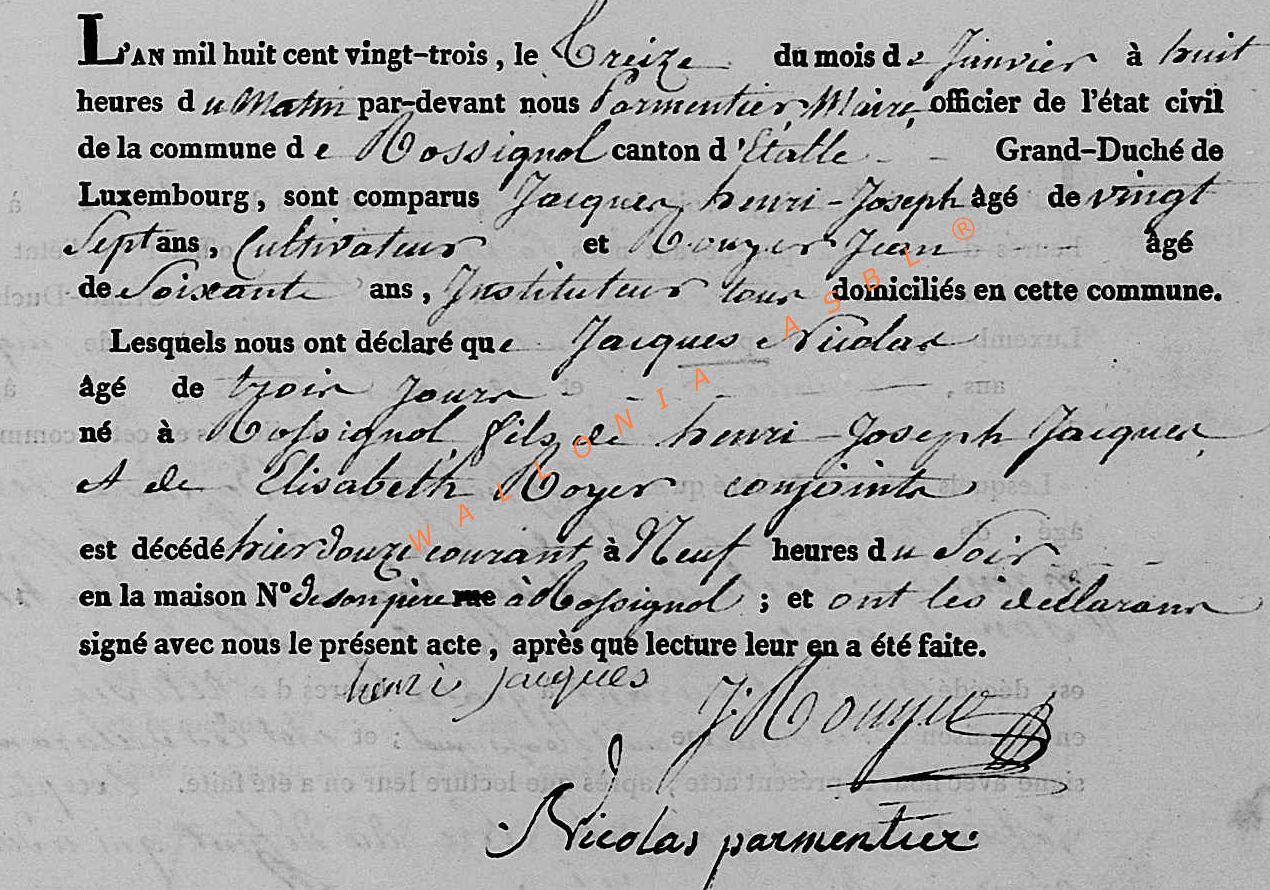 L'AN mil huit cent vingt-trois, le Treize du mois de Janvier à huit
heures du Matin par-devant nous Parmentier, Maire, officier de l'état civil
de la commune de Rossignol canton d'Etalle - - Grand-Duché de
Luxembourg, sont comparus Jacques henri-Joseph âgé de vingt
Sept ans, Cultivateur et Rouyer Jean - - âgé
de Soixante ans, Instituteur tous domiciliés en cette commune.
Lesquels nous ont déclaré que Jacques Nicolas
âgé de trois jours - - - -
né à Rossignol fils de henri-Joseph Jacques,
et de Elisabeth Royer conjoints
est décédé hier douze courant à Neuf heures du Soir - - -
en la maison N° de son père rue à Rossignol ; et ont les déclarans
signé avec nous le présent acte, après que lecture leur en a été faite.
henri jacques
J: Rouyer
Nicolas parmentier.
WALLONIA ASBL ®